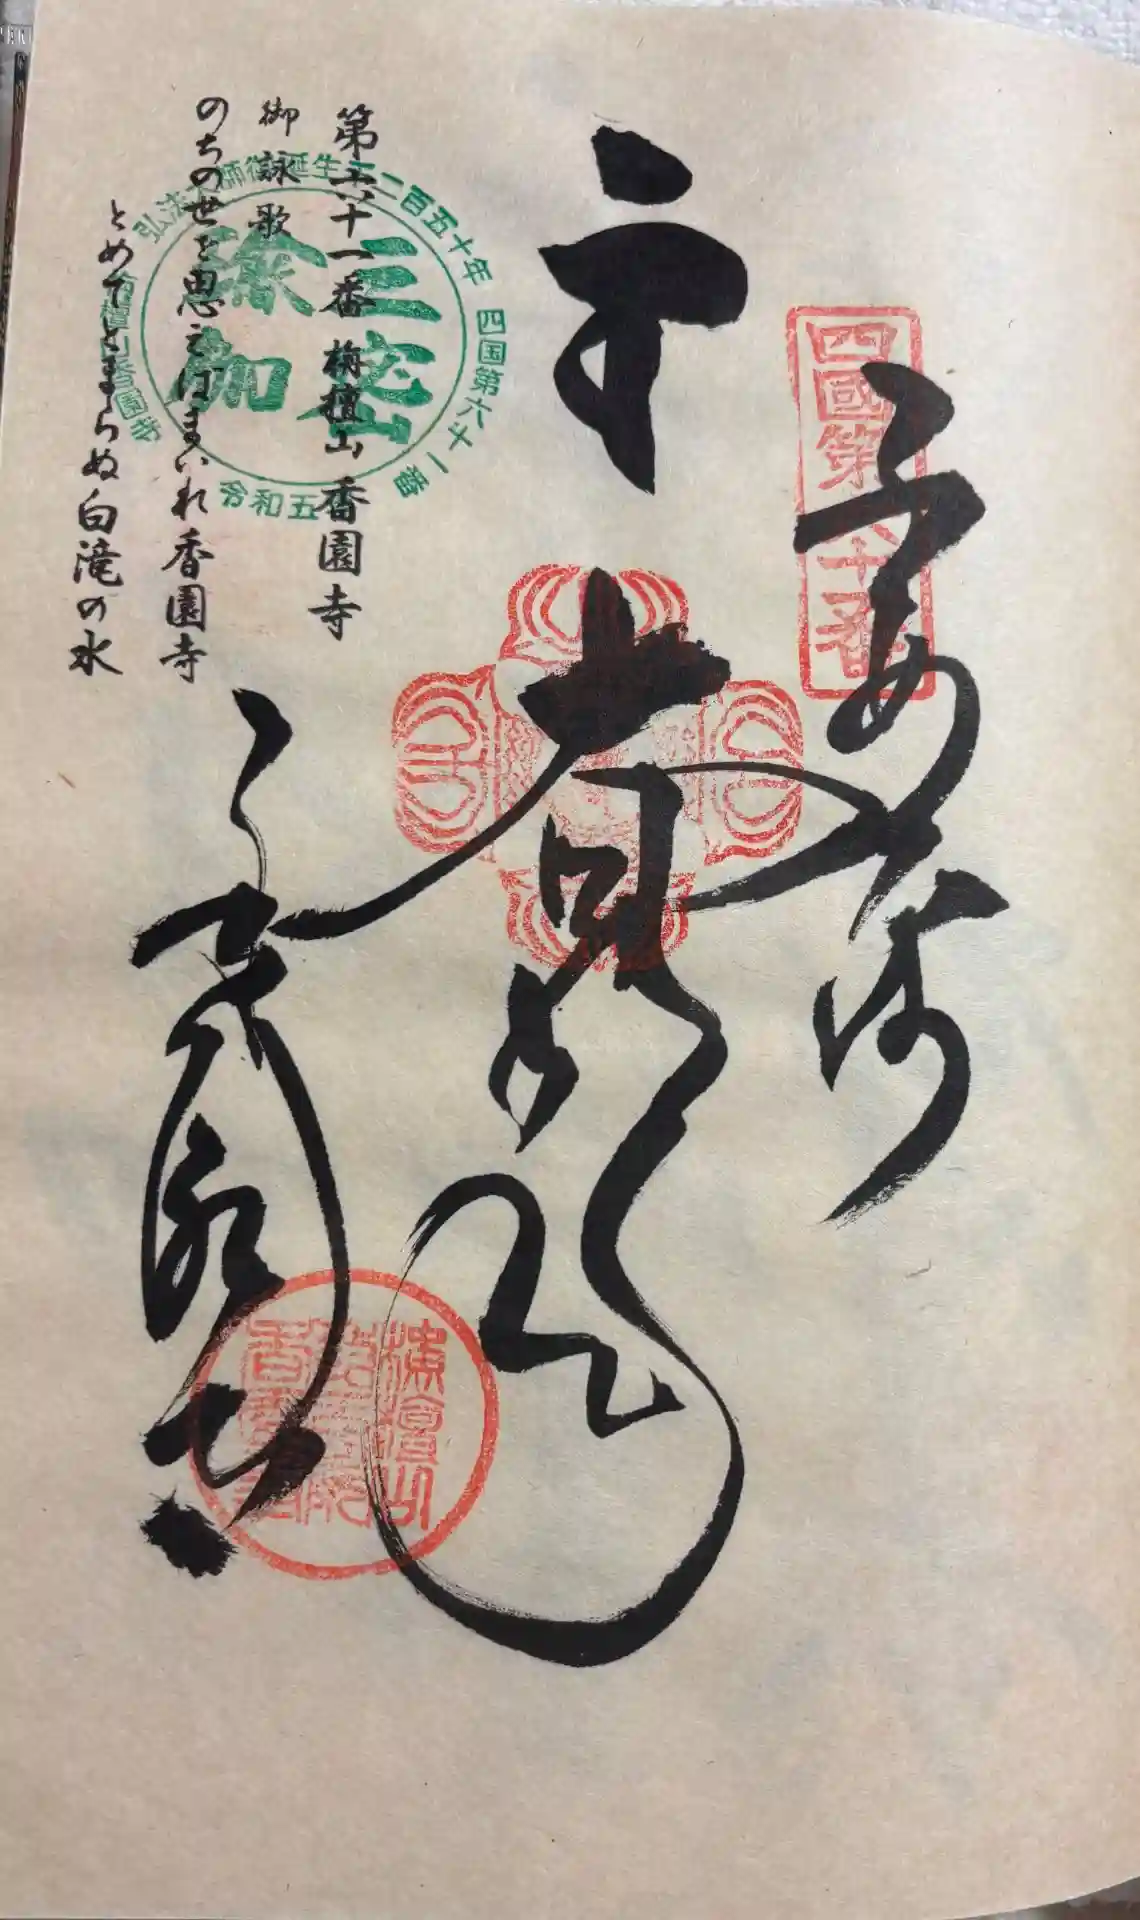 四國第六十一番
奉納
大日如来
香園寺
第六十一番 栴檀山 香園寺
御詠歌
のちの世を思えばまいれ香園寺
とめてとまらぬ白滝の水
弘法大師御誕生千二百五十年
四国第六十一番
栴檀山香園寺
令和五
三密
瑜伽
栴檀山
香園寺